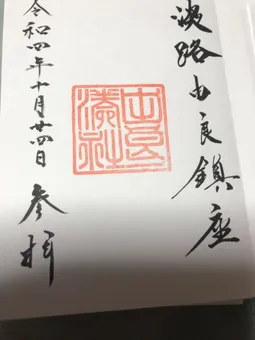 淡路由良鎮座
由良湊社
令和四年十月廿四日 参拝